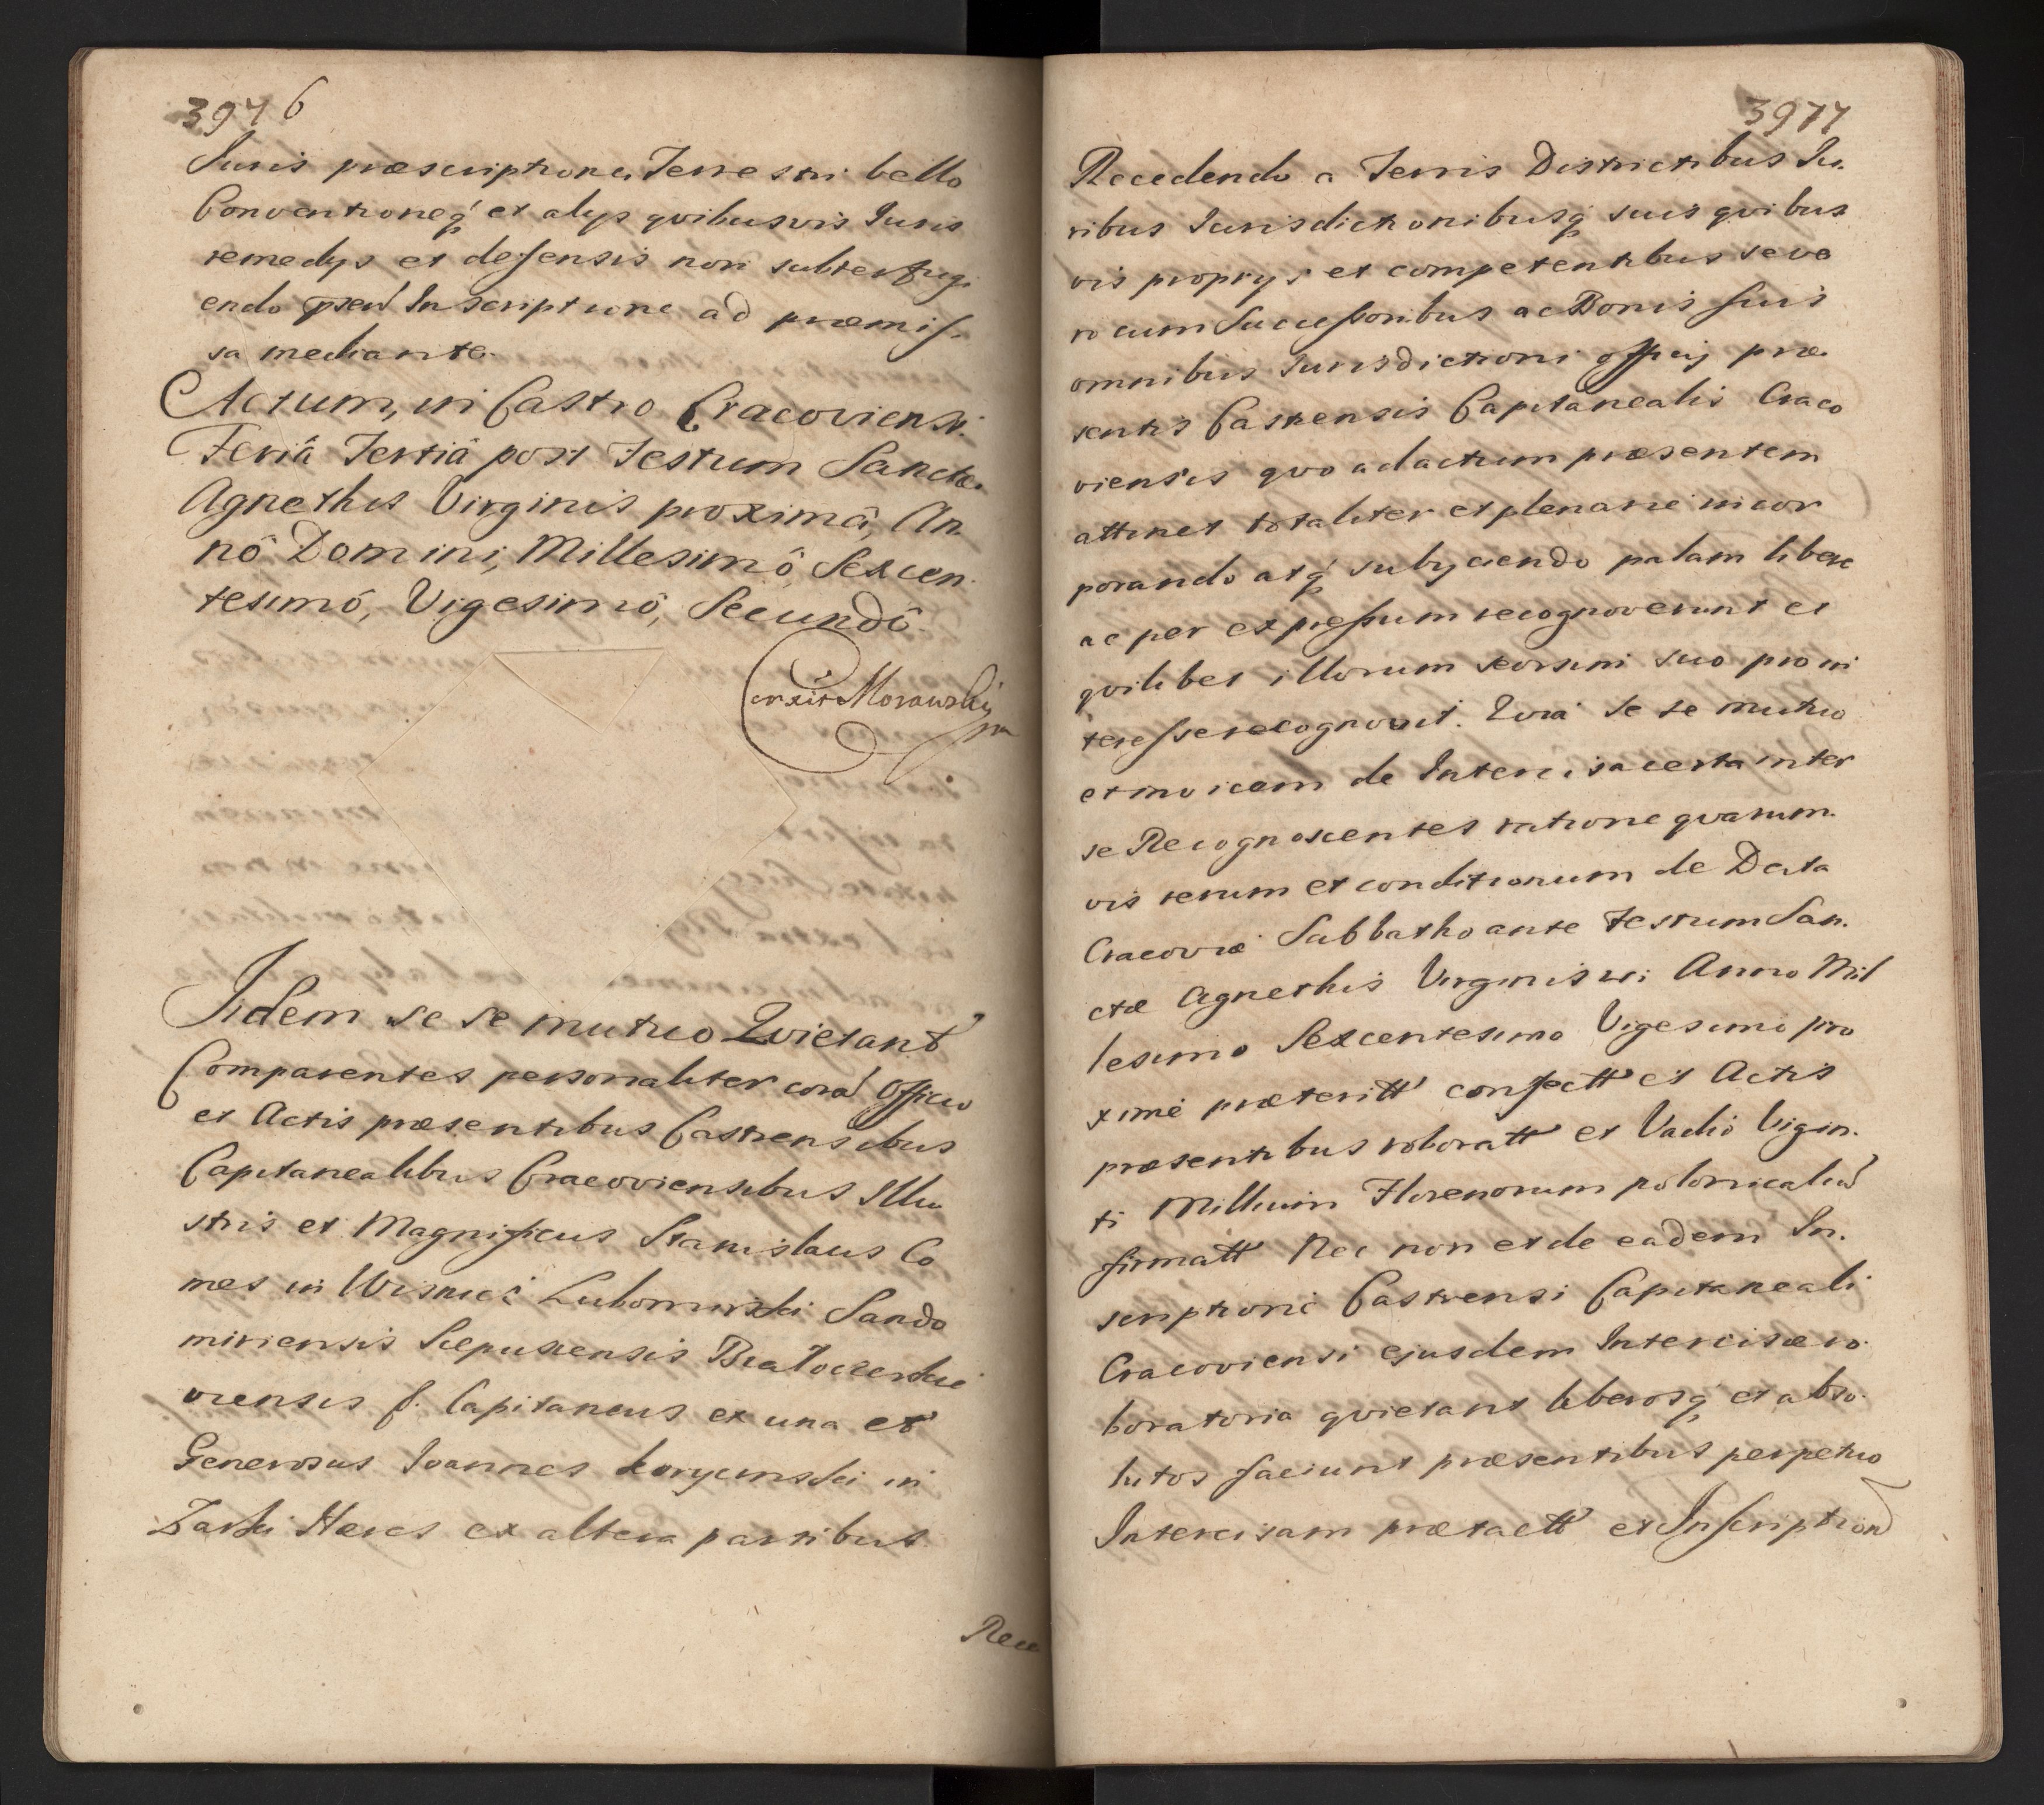 3976
Iuris præscriptione, Terrestri bello
Conventioneq́ et alys qvibusvis Iuris
remedys et defensis non subterfugi
endo p̄sen Inscriptione ad præmis-
sa mediante.
Actum, in Castro Cracoviensi.
Feriâ Tertiâ post Festum Sanctæ
Agnethis Virginis proximâ, An-
nô Domini, Millesimô Sexcen-
tesimô, Vigesimô, Secundô.
Correxit Morawski
mp
Iidem se se mutuo Qvietant
Comparentes personaliter cora Officio
et Actis præsentibus Castrensibus
Capitanealibus Cracoviensibus Illu
stris et Magnificus Stanislaus Co
mes in Wisnicz Lubomirski Sando
miriensis Scepusiensis Białocerkie
viensis &. Capitaneus ex una et
Generosus Ioannes Korycinski in
Zarki Hæres ex altera partibus
Rece
3977
Recedendo a Terris Districtibus Iu-
ribus Iurisdictionibusq́ suis qvibus
vis proprys et competentibus seve
ro cum Successoribus ac Bonis suis
omnibus Iurisdictioni officij præ-
sentis Castrensis Capitanealis Craco
viensis qvo ad actum præsentem
attinet totaliter et plenarie incor
porando atq́ subyciendo palam libere
ac per expressum recognoverunt et
qvilibet illorum seorsim suo pro in
teresse recognovit. Qvia se se mutuo
et invicem de Intercisa certa inter
se Recognoscentes ratione qvarum-
vis rerum et conditionum de Data
Cracoviæ Sabbatho ante Festum San-
ctæ Agnethis Virginis in Anno Mil
lesimo Sexcentesimo Vigesimo pro
xime præteritt confectt et Actis
præsentibus roboratt et Vadio Vigin-
ti Millium Florenorum polonicaliu
firmatt Nec non et de eadem In-
scriptione Castrensi Capitaneali
Cracoviensi ejusdem Intercisæ ro-
boratoria qvietant liberosq́ et abso-
lutos faciunt præsentibus perpetuo
Intercisam prætactt et Inscription